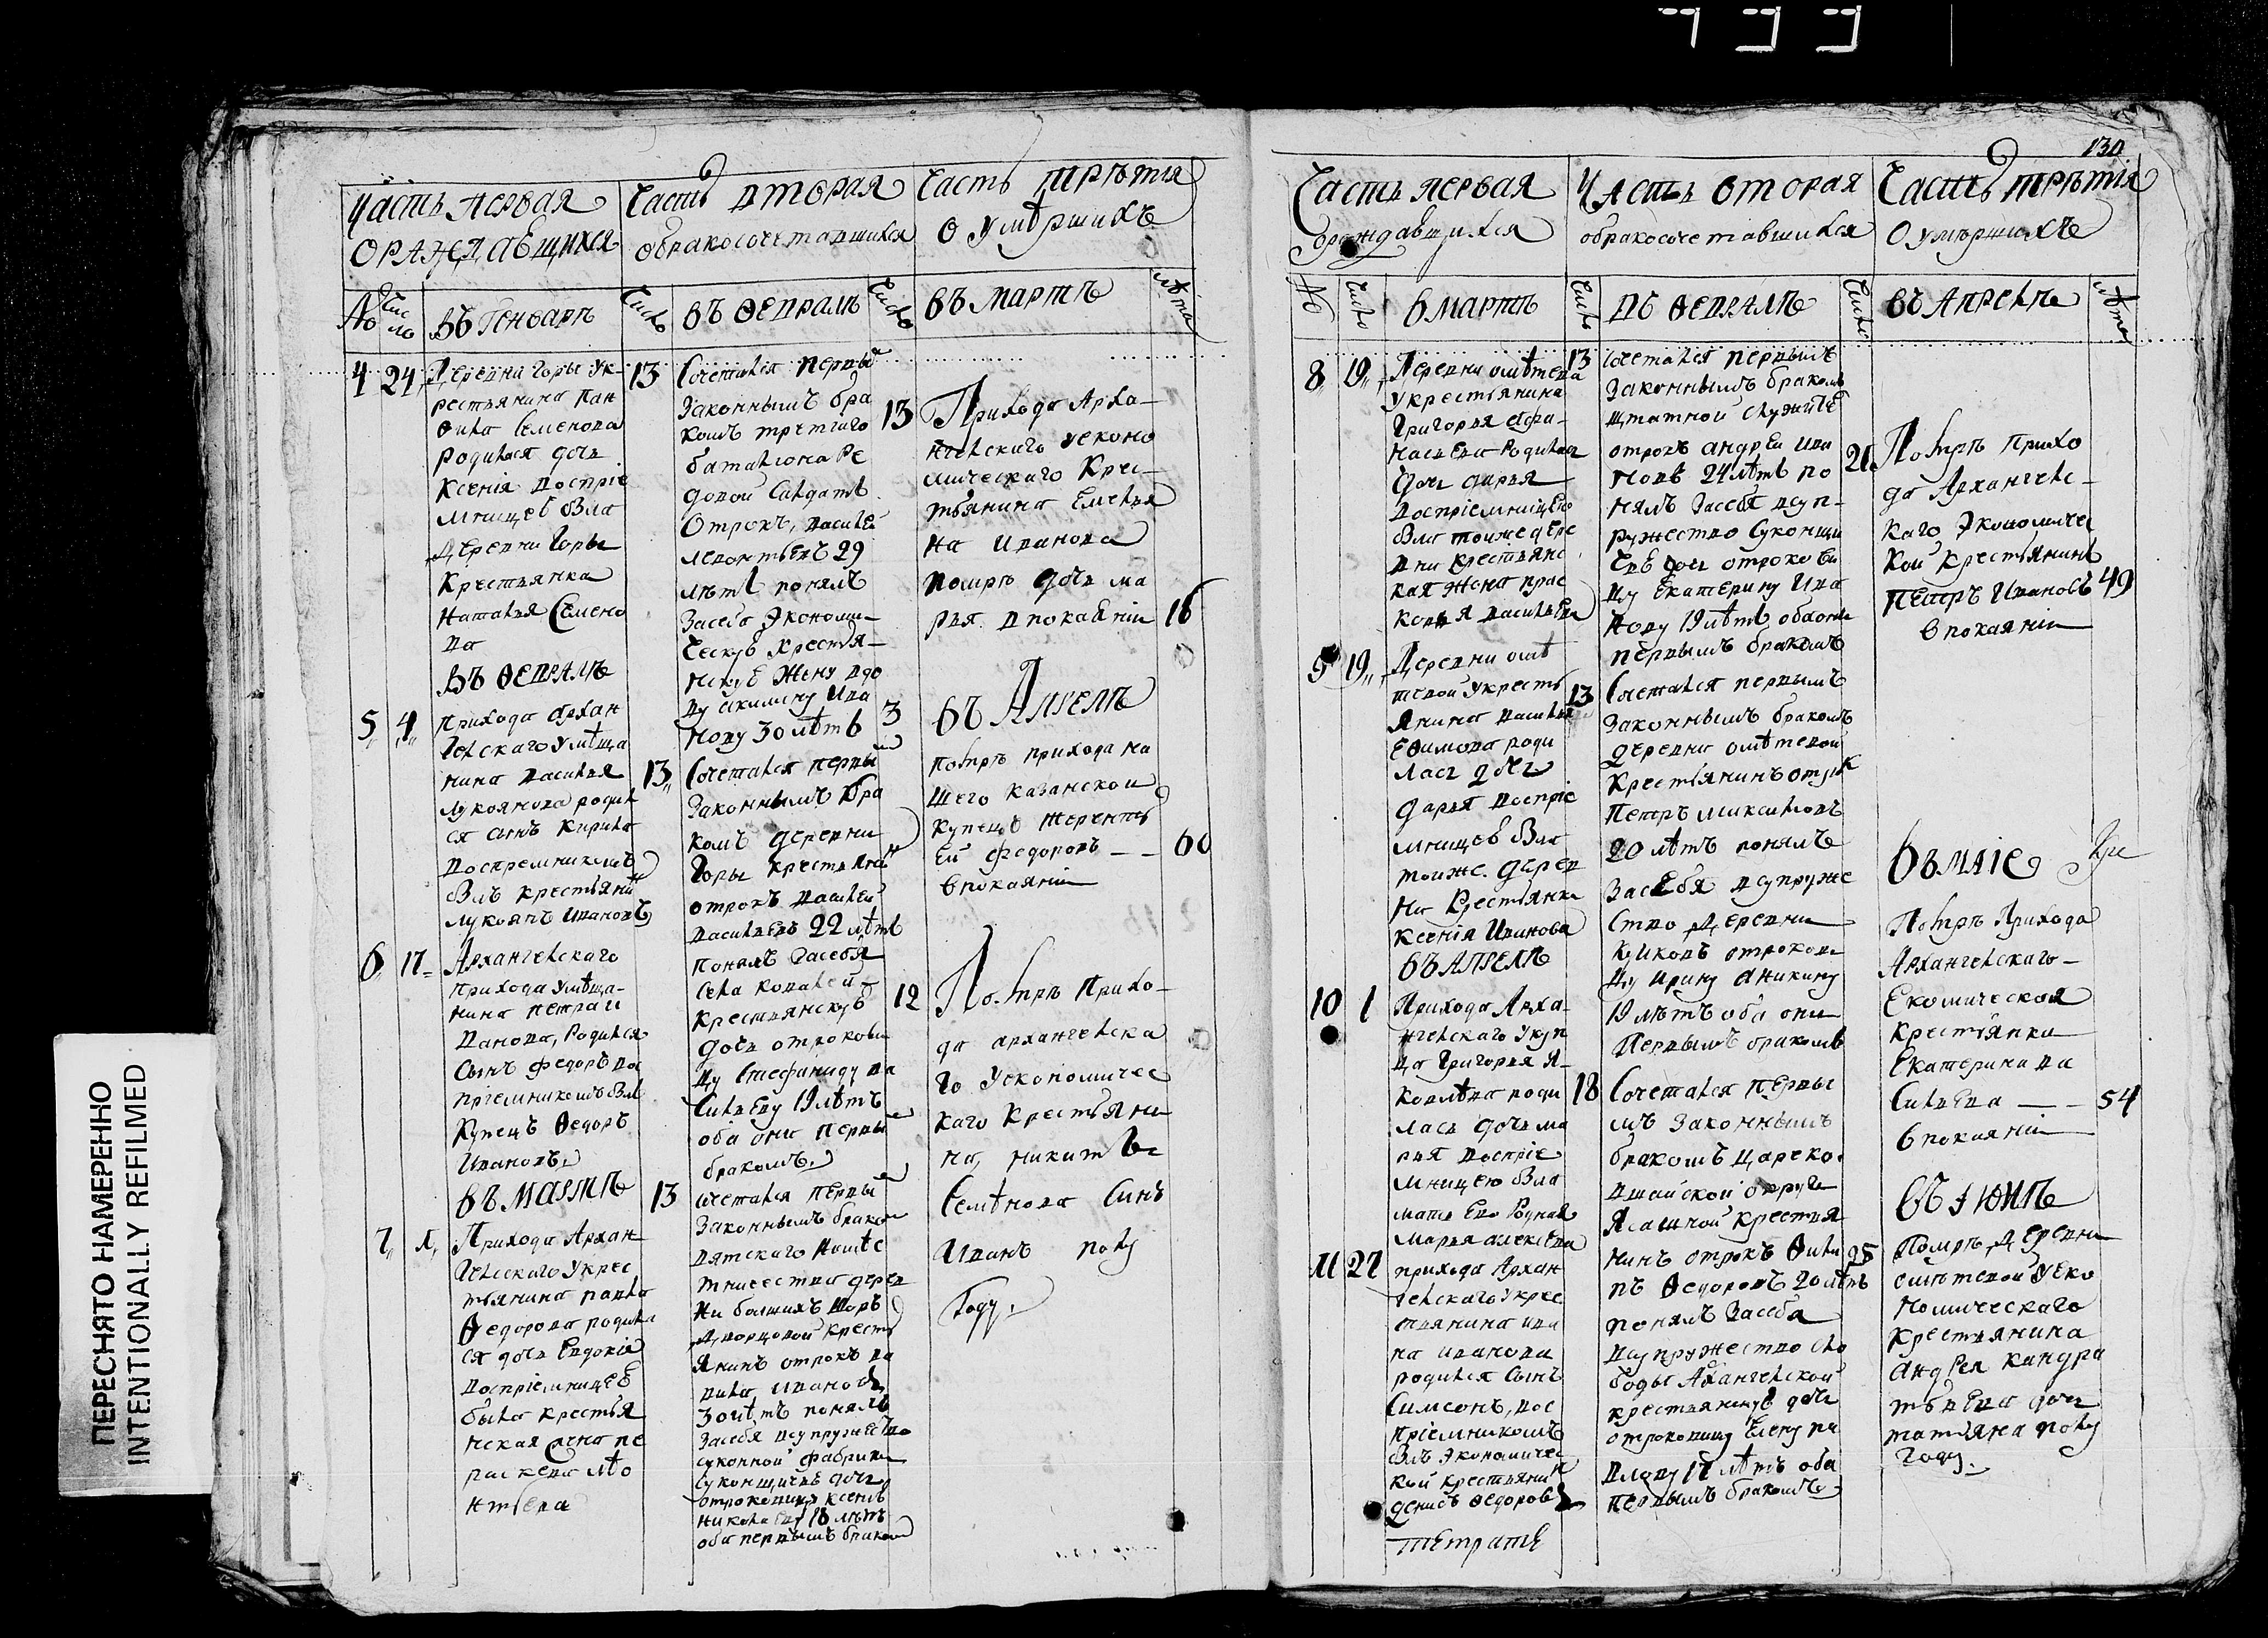 130
Часть первая
о раждавщихся
Часть вторая
обракосочетавшихся
Часть третия
о умѣршихъ
№
Чис
ло
въ Генъварѣ
Число
въ Ѳевралѣ
Число
въ мартѣ
лѣта
4 24 Деревни Горы ук-
рестьянина Пан
Ѳила Семенова
родилася дочь
Ксенія воспріе
мницеѣ была
деревни Горы
Крестьянка
Наталья Семено
ва
Въ Ѳевралѣ
5 4 Прихода Архан
гелского умѣща
нина василья
Лукоянова родил
ся сынъ Кирила
воспремникомъ
былъ крестьянин
лукоянъ Ивановъ
6 17 Архангелскаго
прихода умѣща-
нина петра и
ванова, Родился
Сынъ Федоръ вос
пріемникомъ был
Купецъ Ѳедоръ
Ивановъ
въ мартѣ
7 Прихода Архан
гелскаго укрес
тьянина павла
Ѳедорова родила
ся дочь Евдокія
воспріемницеѣ
была крестья
нская жена пе
раскева лѣо
нтьева
13 Сочетался первы
законнымъ бра
комъ третіаго
баталиона Ре
довой салдатъ
Отрокъ, василей
леонтьевъ 29
лѣтъ понялъ
засебя Экономи-
ческуѣ крестья-
нскуѣ жену вдо
ву акилину Ива
нову 30 лѣтъ
13 Сочетался первы
законнымъ бра
комъ деревни
Горы крестьяни
отрокъ василей
васильевъ 22 лѣтъ
понялъ засебя
села
крестьянскуѣ
дочь отрокови
цу Стефаниду ва
сильеву 19 лѣтъ
оба они первы
бракомъ
13 сочетался первы
законнымъ браком
вятскаго намѣс
тничества дерев
ни
дворцовой кресть
янинъ отрокъ ва
вила Ивановъ
30 лѣтъ понялъ
засебя всупружество
суконной фабрики
суконщичеѣ дочь
отроковицу ксенію
николаеву 18 лѣтъ
оба первымъ браком
13 Прихода Арха-
нгелскаго уеконо
мическаго крес-
тьянина Емелья
на Иванова
помре дочь ма
рья в покаяніи 16
въ Апрелѣ
3 Помре прихода на
шего казанской
купецъ Теренть
ей Федоровъ - - 60
в покаяніи
12 Помре Прихо-
да архангелска
го уекономичес
каго крестьяни
на, никиты
Семѣнова Синъ
Иванъ полу
Году.
Часть первая
о рождавщихся
Часть вторая
обракосочетавшихся
Часть третія
О умѣршихъ
№
Число
в мартѣ
Число
въ Ѳевралѣ
Число
въ Апреле
лѣта
8 19 Деревни ометева
укрестьянина
Григорья Афа-
насьева Родилас
дочь дарья
воспріемницею
была тоиже дере
вни крестьянс
кая жена прас
ковья васильева
9 19 Деревни омѣ
тевой укресть
янина василья
Еѳимова роди
лась дочь
дарья воспріе
мницеѣ была
тоиже дерев
ни Крестьянка
ксенія Иванова
въ апрелѣ
10 1 Прихода Арха
нгелскаго укуп
ца Григорья я-
ковлѣва роди
лась дочь ма
рья воспріе
мницею была
мать Ево Родная
марья алексеева
11 27 прихода Архан
гелскаго укрес
тьянина ива
на иванова
родился сынъ
Симсонъ, вос
пріемникомъ
былъ Экономичес
кой крестьянин
денисъ Ѳедоровъ
тетрате
13 Сочетался первымъ
законнымъ бракомъ
штатной служитель
отрокъ андреи ива
новъ 24 лѣтъ по
нялъ засебя всуп-
ружество суконщи
чеѣ дочь отрокови
цу екатерину Ива
нову 19 лѣтъ оба они
первымъ бракомъ
13 Сочетался первымъ
законнымъ бракомъ
деревни омѣтевой
Крестьянинъ отрок
Петръ максимовъ
20 лѣтъ понялъ
засебя всупруже
ство деревни
отрокови
цу ирину аникину
19 лѣтъ оба они
первымъ бракомъ
18 Сочетался первы
мъ законнымъ
бракомъ Царево.
вшайской округи
ясашной крестья
нинъ отрокъ Ѳили
пъ Ѳедоровъ 20 лѣтъ
понялъ засебя
всупружество сло
боды Архангелской
крестьянинуѣ дочь
отроковицу Елену па
влову 17 лѣтъ оба
первымъ бракомъ
21 Помре прихо
да Архангелс-
каго Экономичес
кой крестьянинъ
Петръ Ивановъ 49
в покаяніи
въ маіе
Помре Прихода
Архангелскаго-
Екомическая
крестьянка
екатерина ва
сильева - - 54
в покаяніи
въ іюнѣ
25 Помре деревни
омѣтевой уеко
номическаго
крестьянина
андрея кандра
тьева дочь
татьяна полу
году.
ПЕРЕСНЯТО НАМЕРЕННО
INTENTIONALLY REFILMED